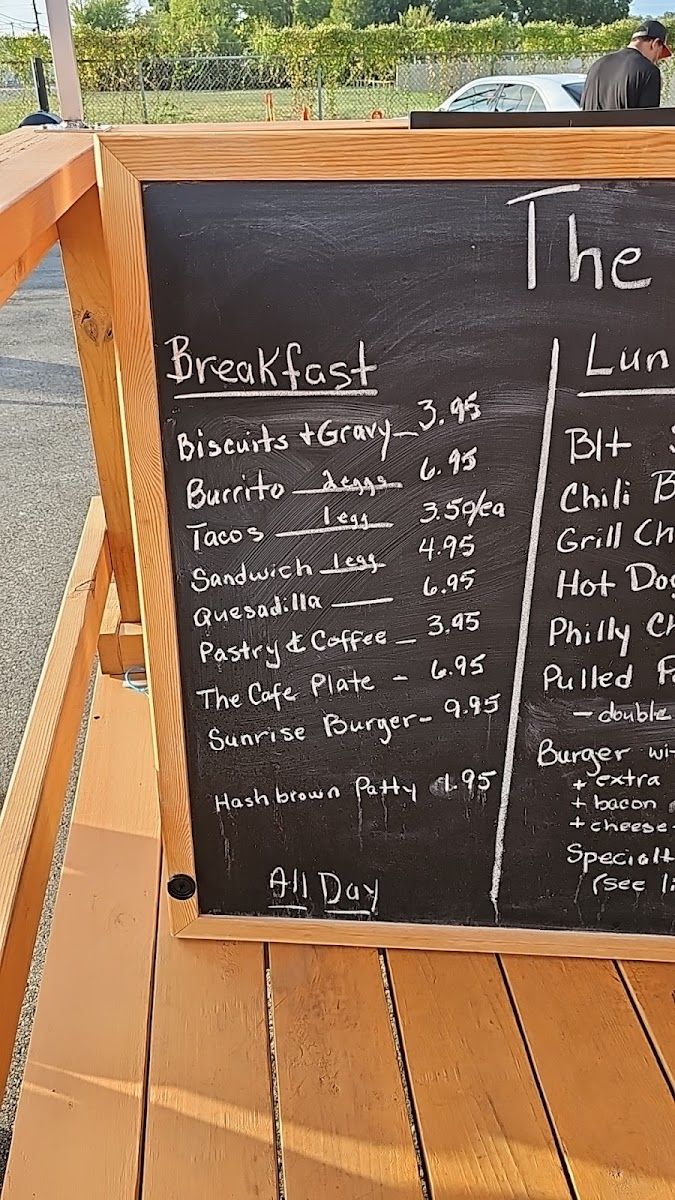 The
Breakfast
Biscuits + Gravy 3.95
Burrito 2eggs 6.95
Tacos 1egg 3.50/ea
Sandwich 1egg 4.95
Quesadilla 6.95
Pastry & Coffee - 3.95
The Cafe Plate - 6.95
Sunrise Burger - 9.95
Hashbrown Patty 1.95
All Day
Lun
Blt
Chili B
Grill Ch
Hot Dog
Philly Ch
Pulled
- double
Burger wi
+ extra
+ bacon
+ cheese
Specialt
(see li